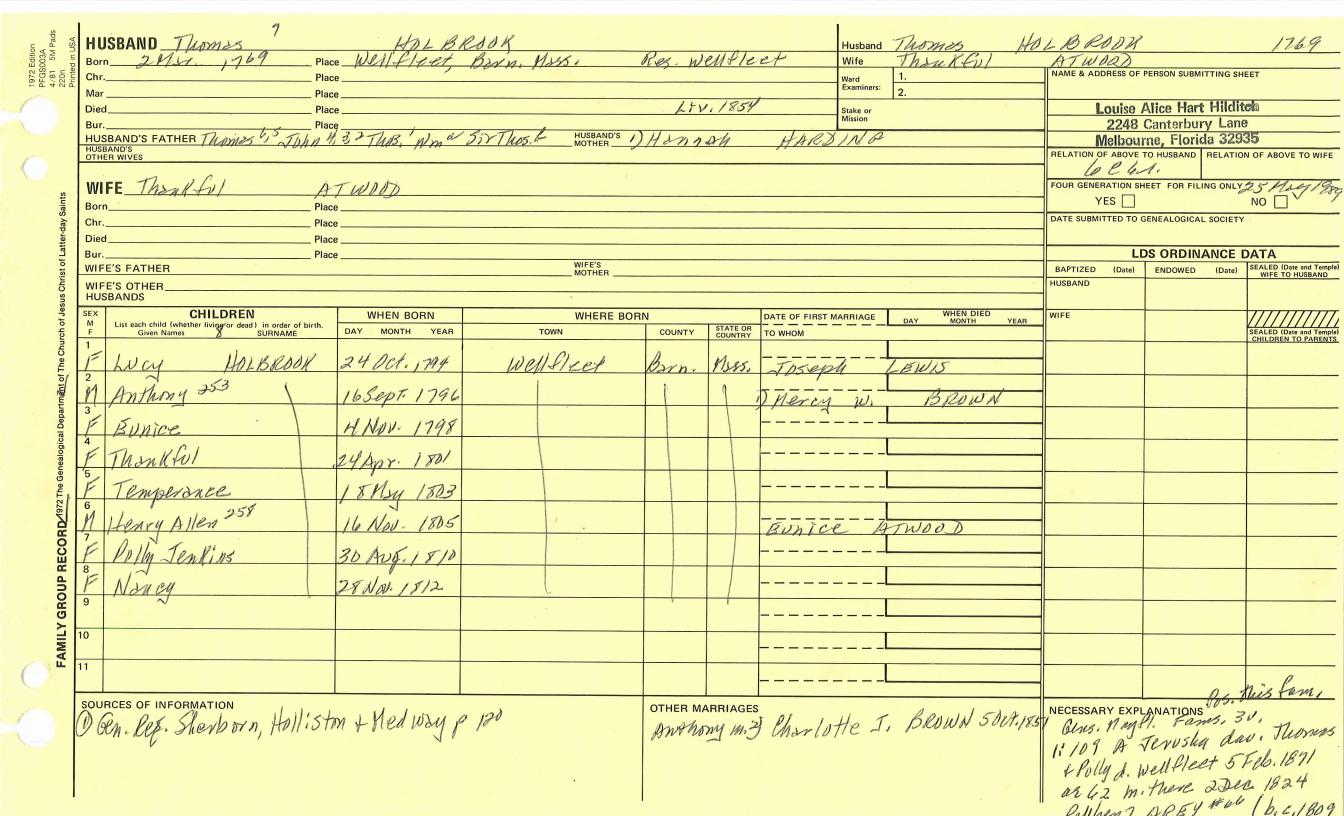 1972 Edition
PFGS003A
4/81 5M Pads
220n
Printed in USA
FAMILY GROUP RECORD
1972 The Genealogical Department of The Church of Jesus Christ of Latter-day Saints
HUSBAND Thomas 7 HOLBROOK
Born 2 Mar. 1769 Place Wellfleet, Barn. Mass. Res. Wellfleet
Chr. Place
Mar Place
Died Place Liv. 1854
Bur. Place
HUSBAND'S FATHER Thomas 6, 5 John 4, 3, 2 Thos. 1 Wm a Sir Thos. HUSBAND'S MOTHER 1) Hannah HARDING
HUSBAND'S OTHER WIVES
WIFE Thankful ATWOOD
Born Place
Chr. Place
Died Place
Bur. Place
WIFE'S FATHER WIFE'S MOTHER
WIFE'S OTHER HUSBANDS
Husband Thomas HOLBROOK 1769
Wife Thankful ATWOOD
Ward Examiners: 1.
2.
Stake or Mission
NAME & ADDRESS OF PERSON SUBMITTING SHEET
Louise Alice Hart Hilditch
2248 Canterbury Lane
Melbourne, Florida 32935
RELATION OF ABOVE TO HUSBAND RELATION OF ABOVE TO WIFE
6 C 6r.
FOUR GENERATION SHEET FOR FILING ONLY 25 May 1989
YES NO
DATE SUBMITTED TO GENEALOGICAL SOCIETY
LDS ORDINANCE DATA
BAPTIZED (Date) ENDOWED (Date) SEALED (Date and Temple) WIFE TO HUSBAND
HUSBAND
WIFE
SEALED (Date and Temple) CHILDREN TO PARENTS
SEX M F CHILDREN WHEN BORN WHERE BORN DATE OF FIRST MARRIAGE WHEN DIED
List each child (whether living or dead) in order of birth.
Given Names 8 SURNAME DAY MONTH YEAR TOWN COUNTY STATE OR COUNTRY TO WHOM DAY MONTH YEAR
1 F Lucy HOLBROOK 24 Oct. 1794 Wellfleet Barn. Mass. Joseph LEWIS
2 M Anthony 253 16 Sept. 1796 1) Mercy W. BROWN
3 F Eunice 4 Nov. 1798
4 F Thankful 24 Apr. 1801
5 F Temperance 18 May 1803
6 M Henry Allen 258 16 Nov. 1805 Eunice ATWOOD
7 F Polly Jenkins 30 Aug. 1810
8 F Nancy 28 Nov. 1812
9
10
11
SOURCES OF INFORMATION
① Gen. Reg. Sherborn, Holliston & Medway p 120
OTHER MARRIAGES
Anthony m. 2) Charlotte J. BROWN 5 Oct. 1851
NECESSARY EXPLANATIONS Pos. this fam.
Gens. Mayfl. Fams. 3v.
1:109 A Jerusha dau. Thomas
& Polly d. Wellfleet 5 Feb. 1871
ae 62 m. there 2 Dec 1824
AREY #66 (b.c. 1809